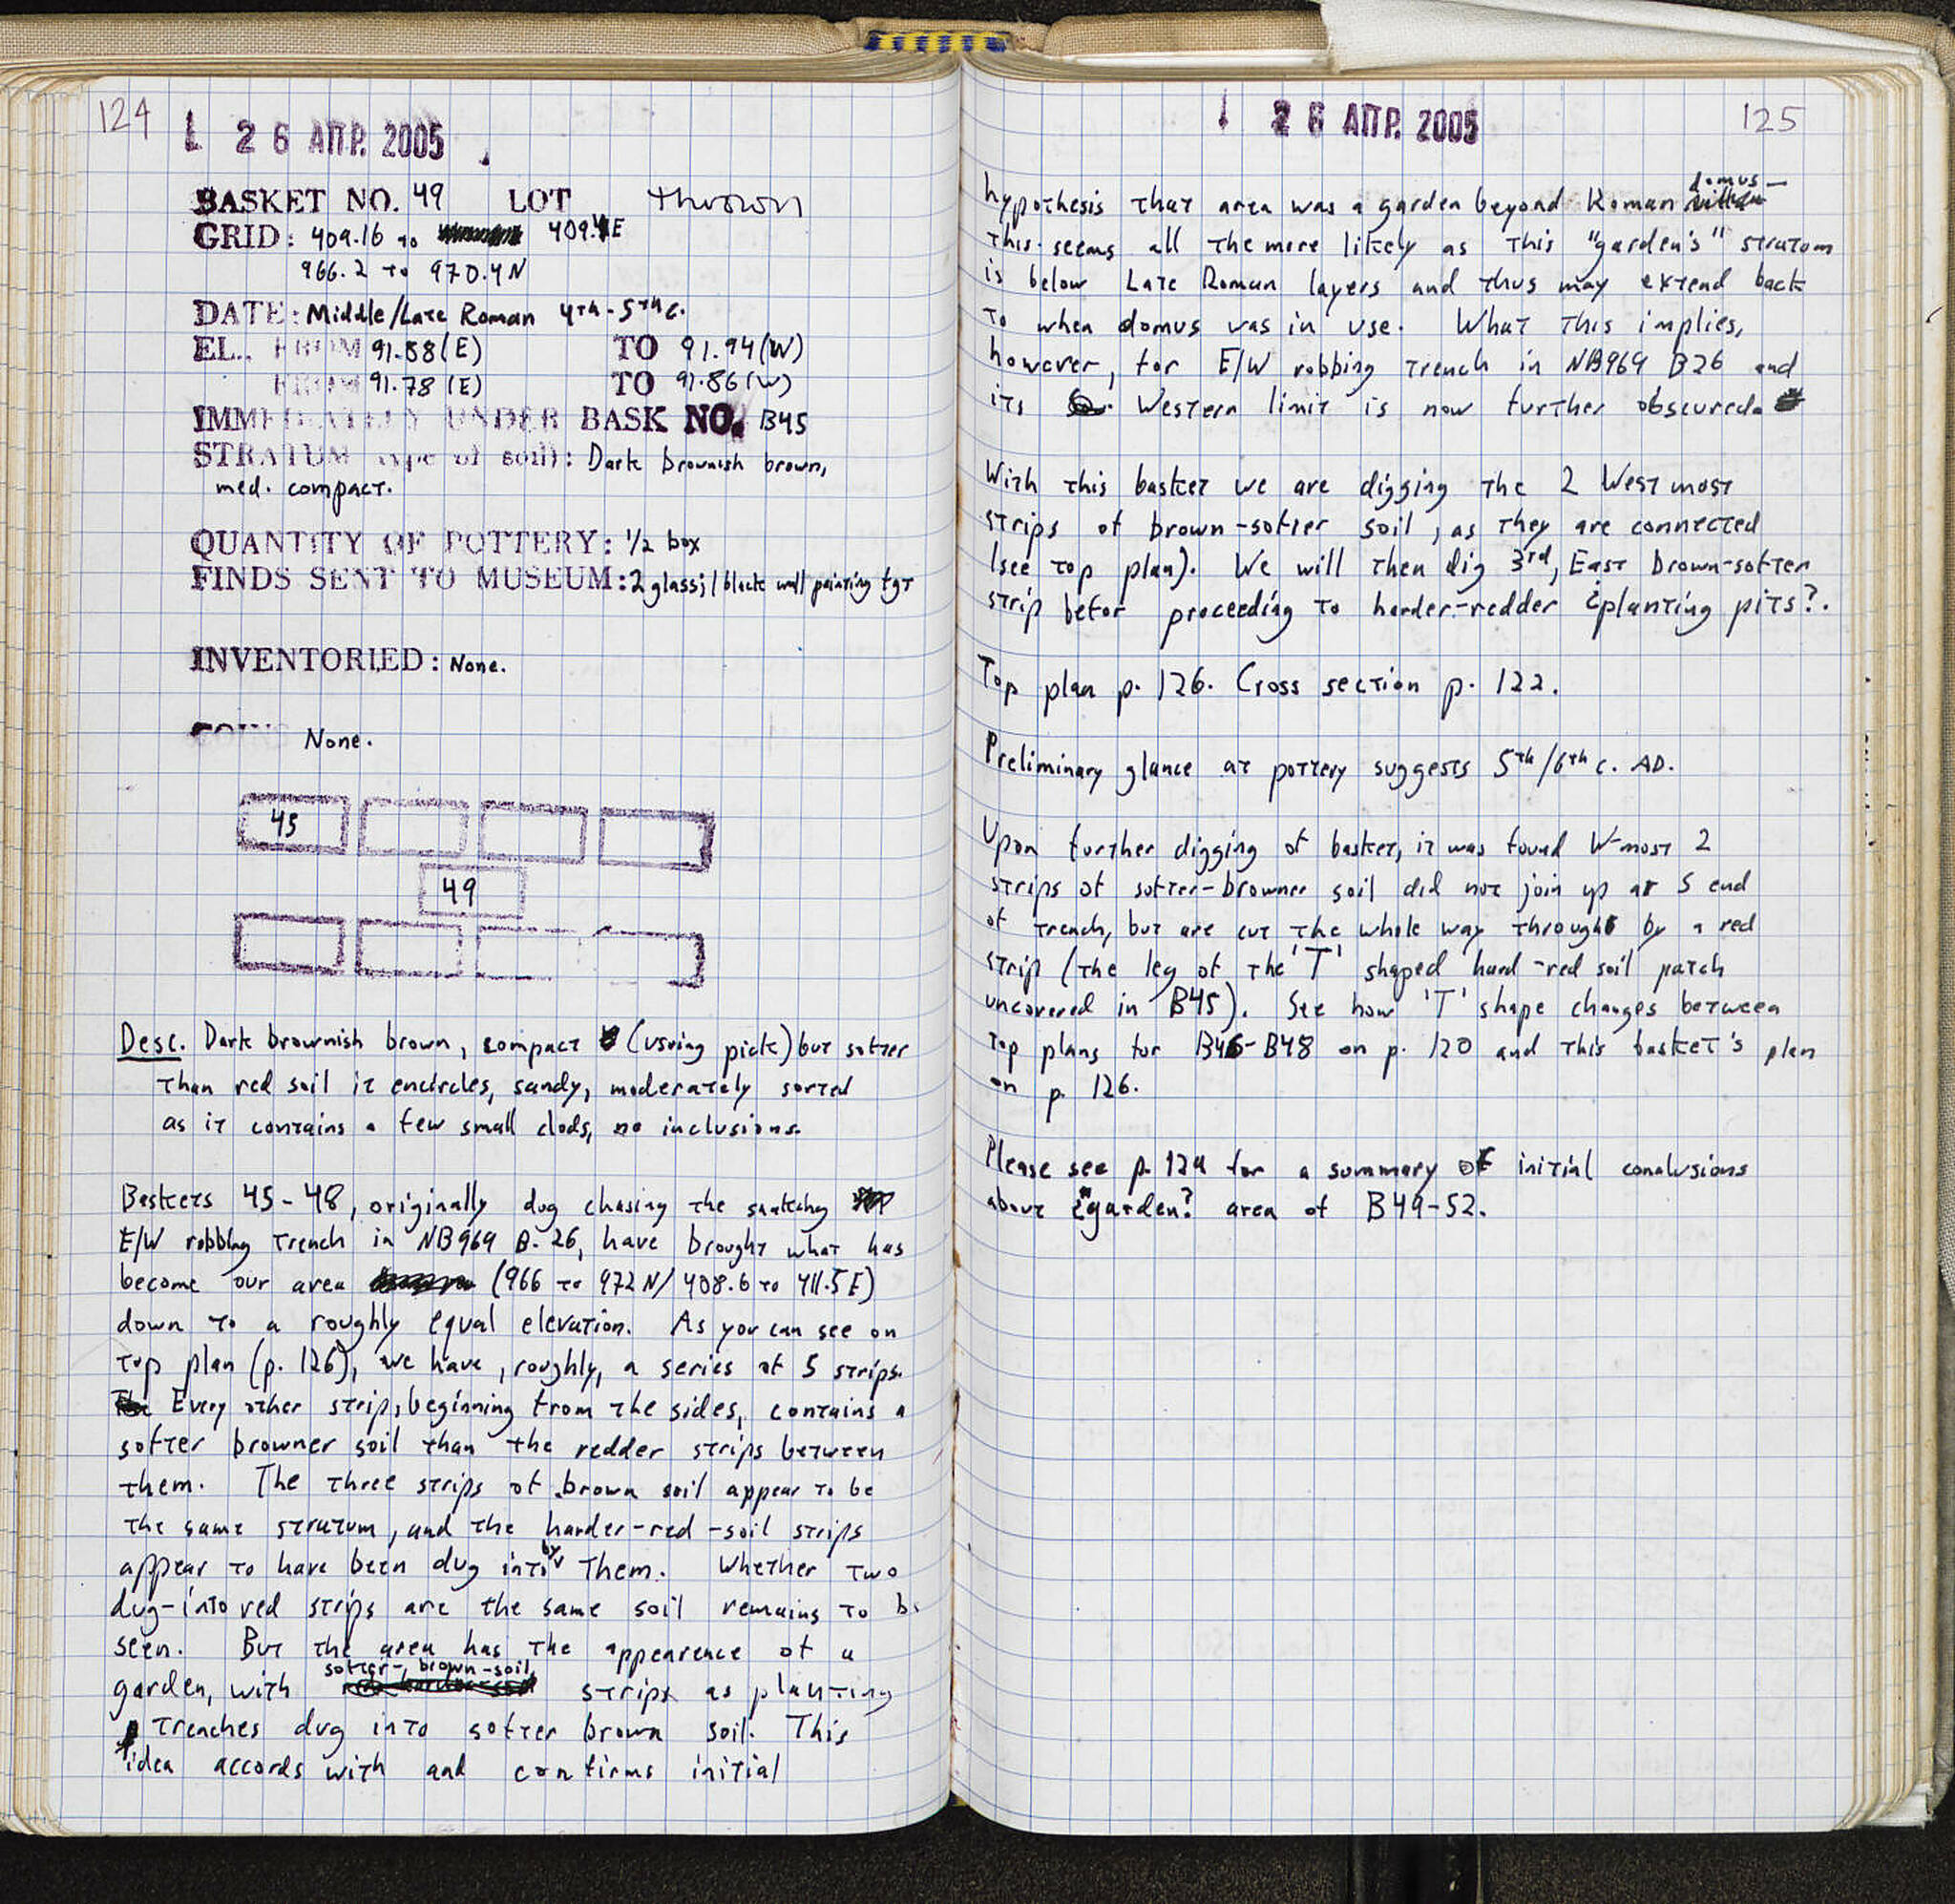 124
26 ΑΠΡ. 2005
BASKET NO. 49 LOT thrown
GRID: 409.16 to 409.4E
966.2 to 970.4N
DATE: Middle/Late Roman 4th-5th c.
EL. FROM 91.88(E) TO 91.94(W)
FROM 91.78 (E) TO 91.86(W)
IMMEDIATELY UNDER BASK NO. B45
STRATUM (type of soil): Dark brownish brown,
med. compact.
QUANTITY OF POTTERY: 1/2 box
FINDS SENT TO MUSEUM: 2 glass; 1 black wall painting fgt
INVENTORIED: None.
COINS None.
45
49
Desc. Dark brownish brown, compact (using pick) but softer
than red soil it encircles, sandy, moderately sorted
as it contains a few small clods, no inclusions.
Baskets 45-48, originally dug chasing the snatchy
E/W robbing trench in NB969 B.26, have brought what has
become our area (966 to 972N/408.6 to 411.5E)
down to a roughly equal elevation. As you can see on
top plan (p. 126), we have, roughly, a series of 5 strips.
Every other strip, beginning from the sides, contains a
softer browner soil than the redder strips between
them. The three strips of brown soil appear to be
the same stratum, and the harder-red-soil strips
appear to have been dug into by them. Whether two
dug-into red strips are the same soil remains to be
seen. But the area has the appearence of a
garden, with softer-brown-soil strips as planting
trenches dug into softer brown soil. This
idea accords with and confirms initial
26 ΑΠΡ. 2005
125
hypothesis that area was a garden beyond Roman domus —
this seems all the more likely as this "garden's" stratum
is below Late Roman layers and thus may extend back
to when domus was in use. What this implies,
however, for E/W robbing trench in NB969 B26 and
its Western limit is now further obscured.
With this basket we are digging the 2 West most
strips of brown-softer soil, as they are connected
(see top plan). We will then dig 3rd, East brown-softer
strip befor proceeding to harder-redder ¿planting pits?.
Top plan p. 126. Cross section p. 122.
Preliminary glance at pottery suggests 5th/6th c. AD.
Upon further digging of basket, it was found W-most 2
strips of softer-browner soil did not join up at S end
of trench, but are cut the whole way through by a red
strip (the leg of the 'T' shaped hard-red soil patch
uncovered in B45). See how 'T' shape changes between
top plans for B46-B48 on p. 120 and this basket's plan
on p. 126.
Please see p. for a summary of initial conclusions
above ¿"garden? area of B49-52.